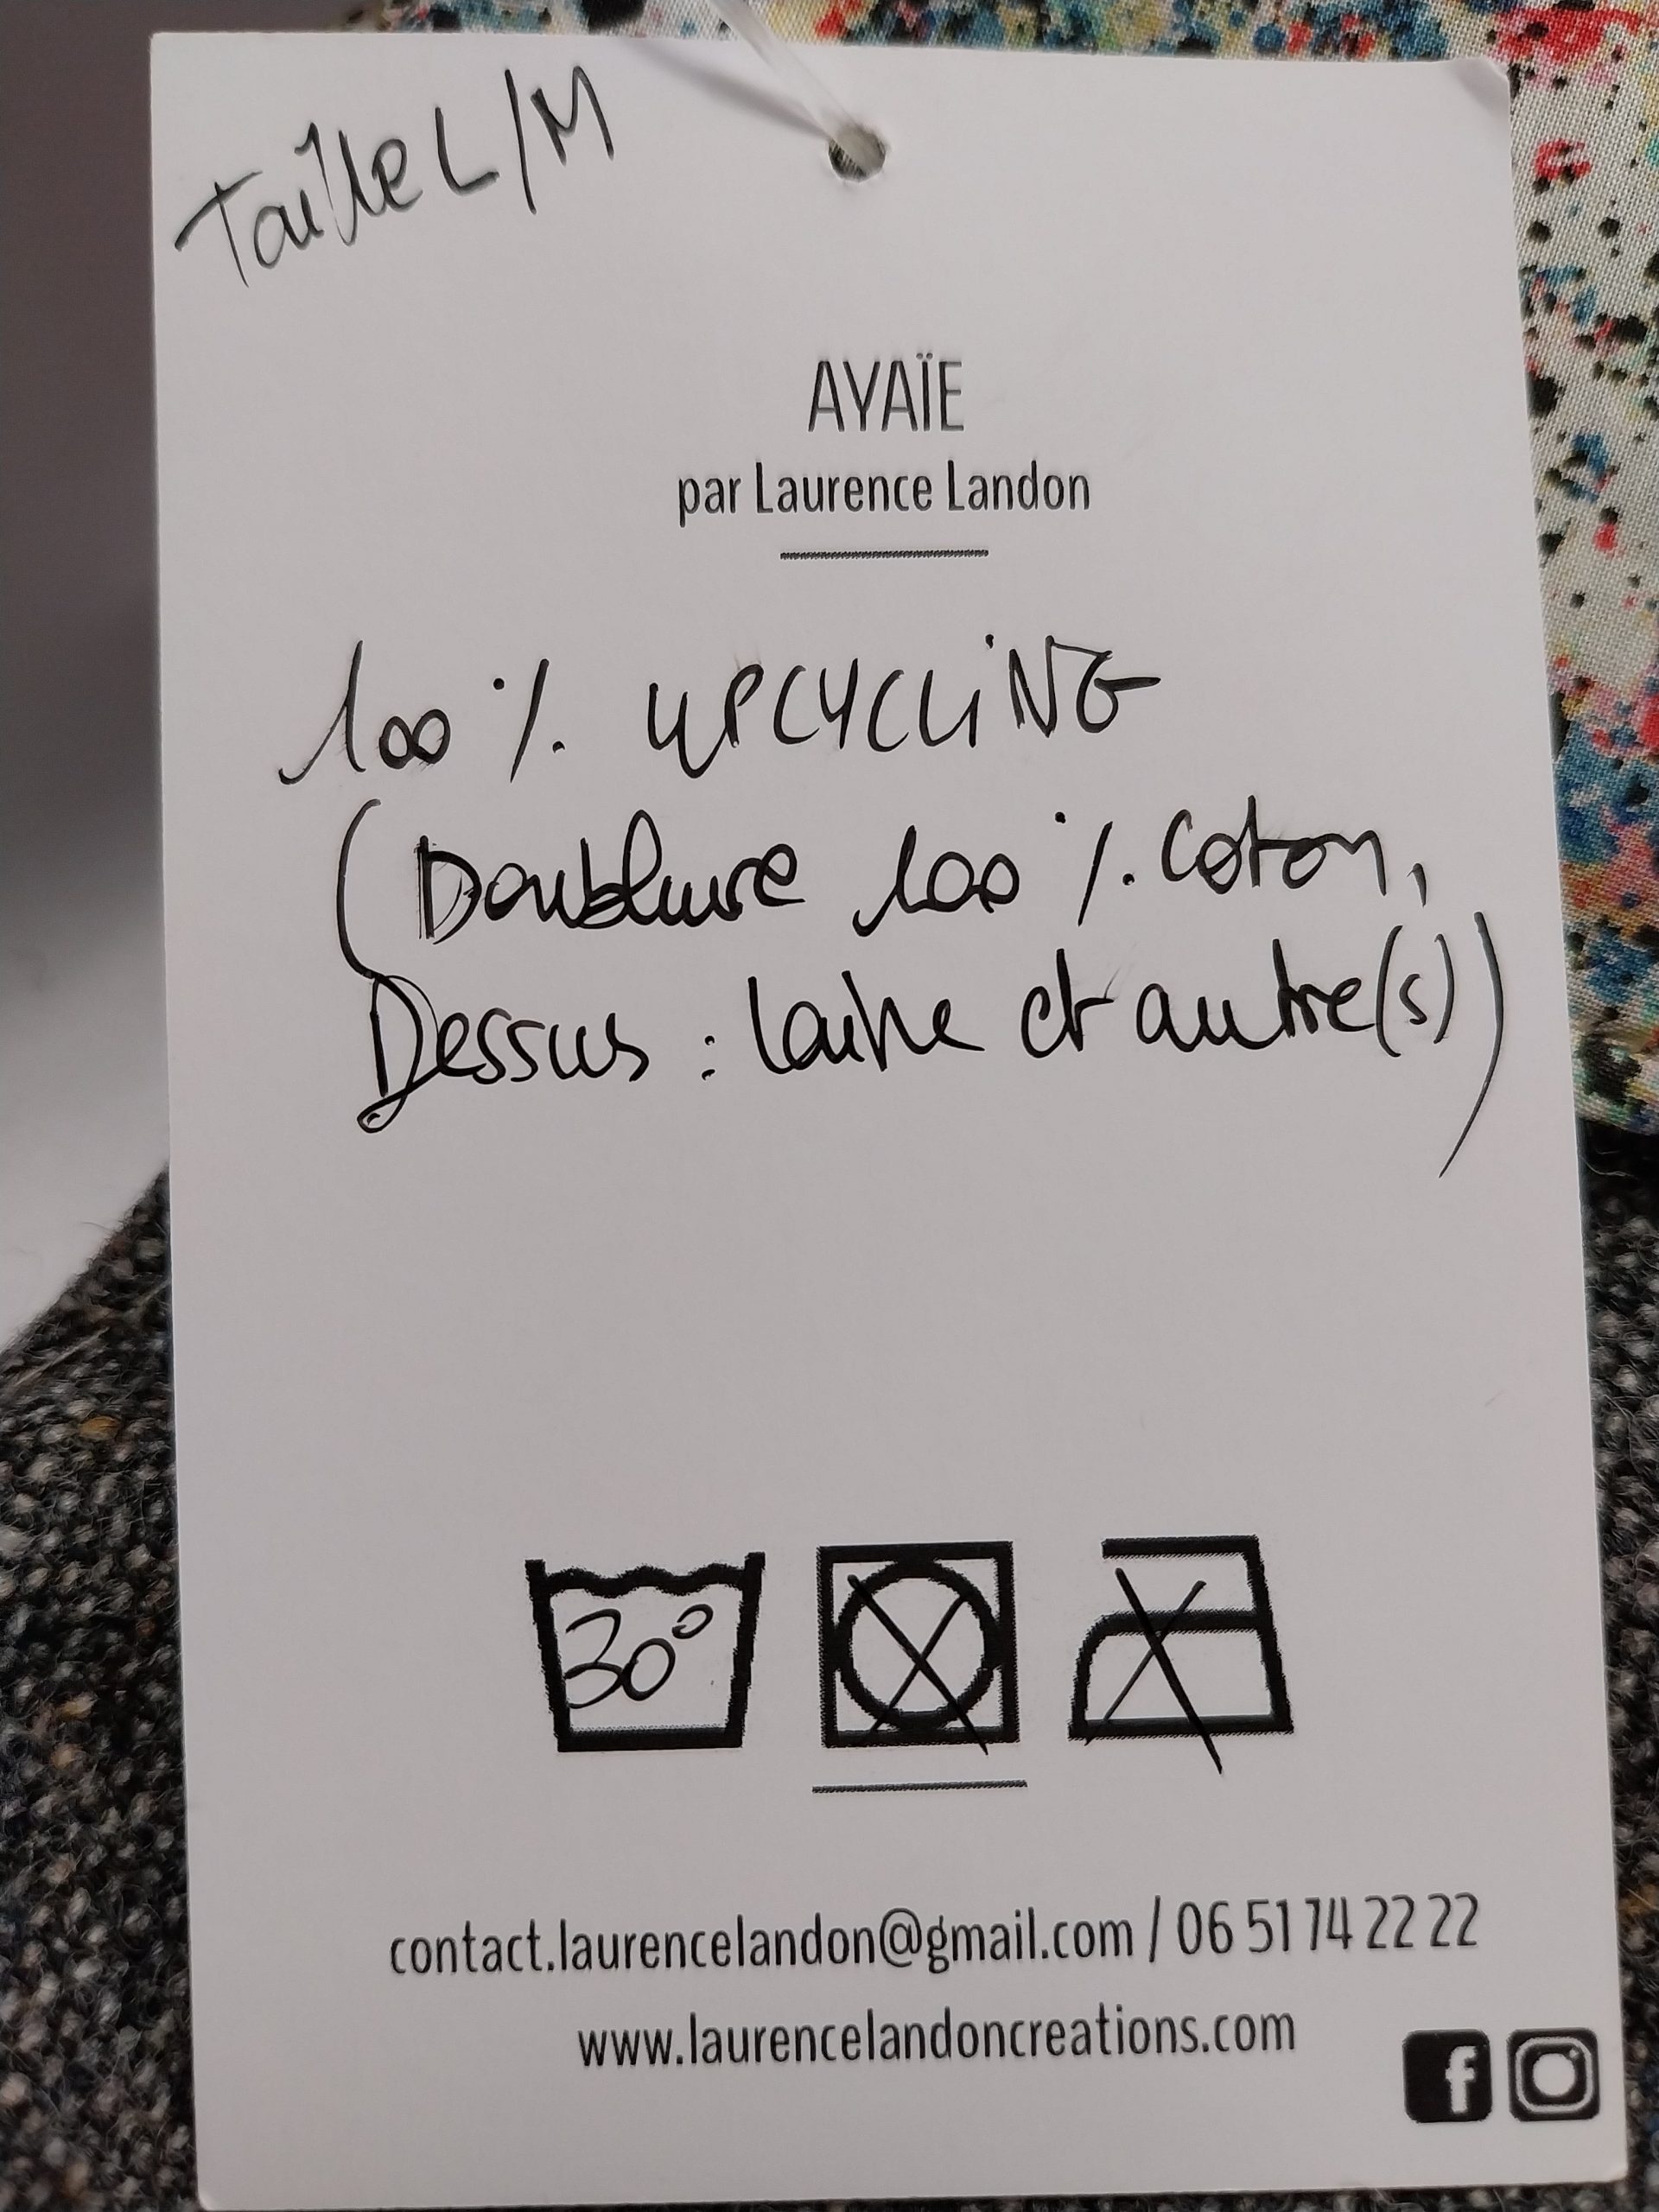 Taille L/M
AYAÏE
par Laurence Landon
100 % UPCYCLiNG
(Doublure 100 % coton,
Dessus : laine et autre(s))
30°
contact.laurencelandon@gmail.com / 06 51 74 22 22
www.laurencelandoncreations.com